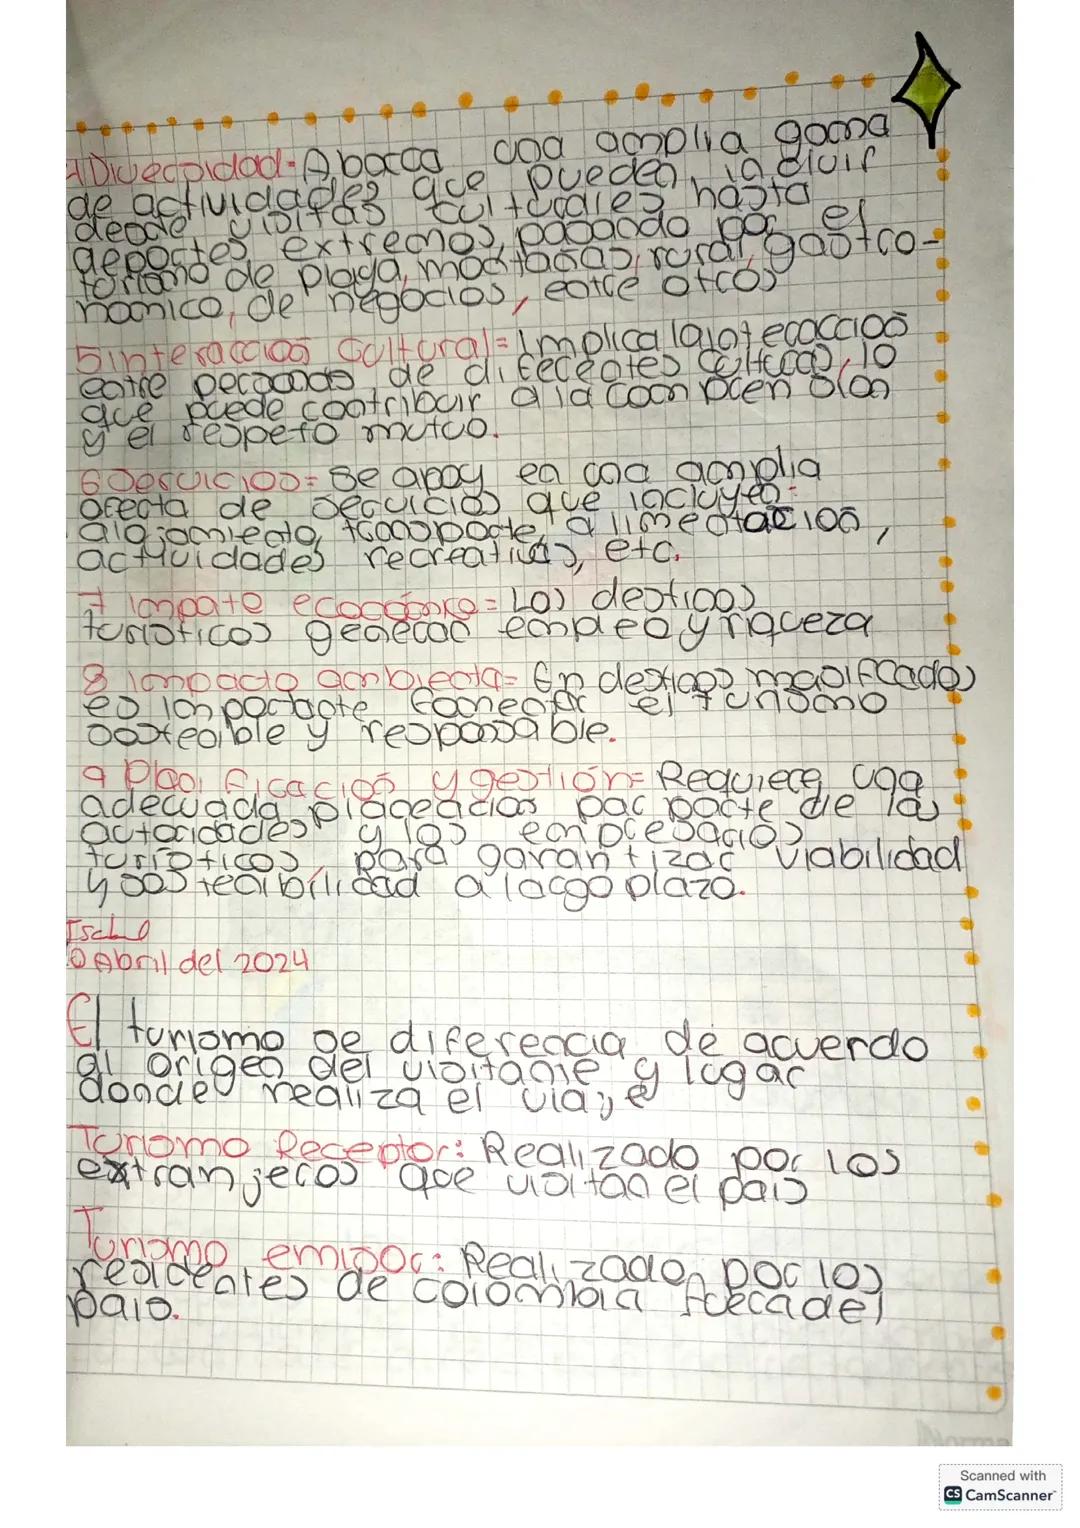 4 Diversidad= Abarca una amplia gama
de actividades que pueden incluir
desde visitas culturales hasta
deportes extremos, pasando por el
turismo de playa, montañas, rural, gastro-
nomico, de negocios, entre otros
5 interaccion Cultural= Implica la interaccion
entre personas de diferentes culturas, lo
que puede contribuir a la comprension
y el respeto mutuo.
6 Servicios= Se apoy en una amplia
oferta de servicios que incluyen:
alojamiento, transporte, alimentacion,
actividades recreativas, etc.
7 impato economico= Los destinos
turisticos generan empleo y riqueza
8 impacto ambienta= En destinos masificados
es importante fomentar el turismo
sosteible y responsable.
9 Planificación y gestión= Requiere una
adecuada planeacion por parte de las
autoridades y los empresarios
turisticos para garantizar viabilidad
y sosteaibilidad a largo plazo.
Abril del 2024
El turismo se diferencia de acuerdo
al origen del visitante y lugar
donde realiza el viaje
Turismo Receptor: Realizado por los
extranjeros que visitan el pais
Turismo emisor: Realizado por los
residentes de colombia fuera del
pais.
Norma
Scanned with
CS CamScanner